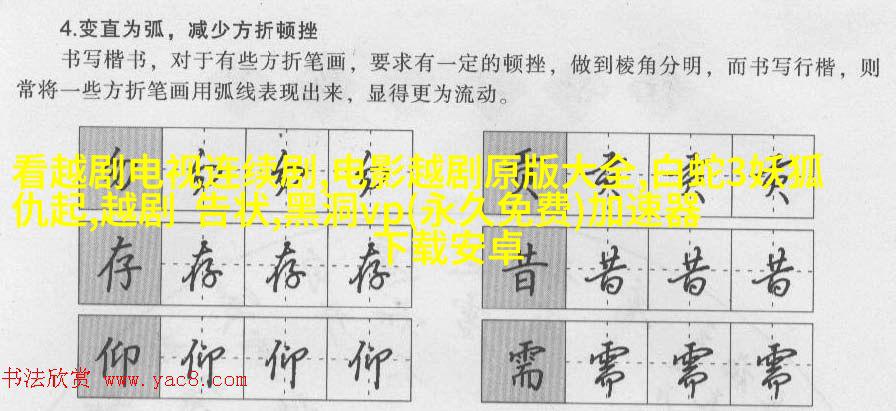 4.变直为弧，减少方折顿挫
书写楷书，对于有些方折笔画，要求有一定的顿挫，做到棱角分明，而书写行楷，则
常将一些方折笔画用弧线表现出来，显得更为流动。
看越剧电视连续剧,电影越剧原版大全,白蛇3妖狐
仇起,越剧 告状,黑洞vp(永久免费)加速器
下载安卓
存 存 存 存 昔 昔 昔 昔
仰 仰 仰 仰 需 需 需 需
书法欣赏 www.yac8.com